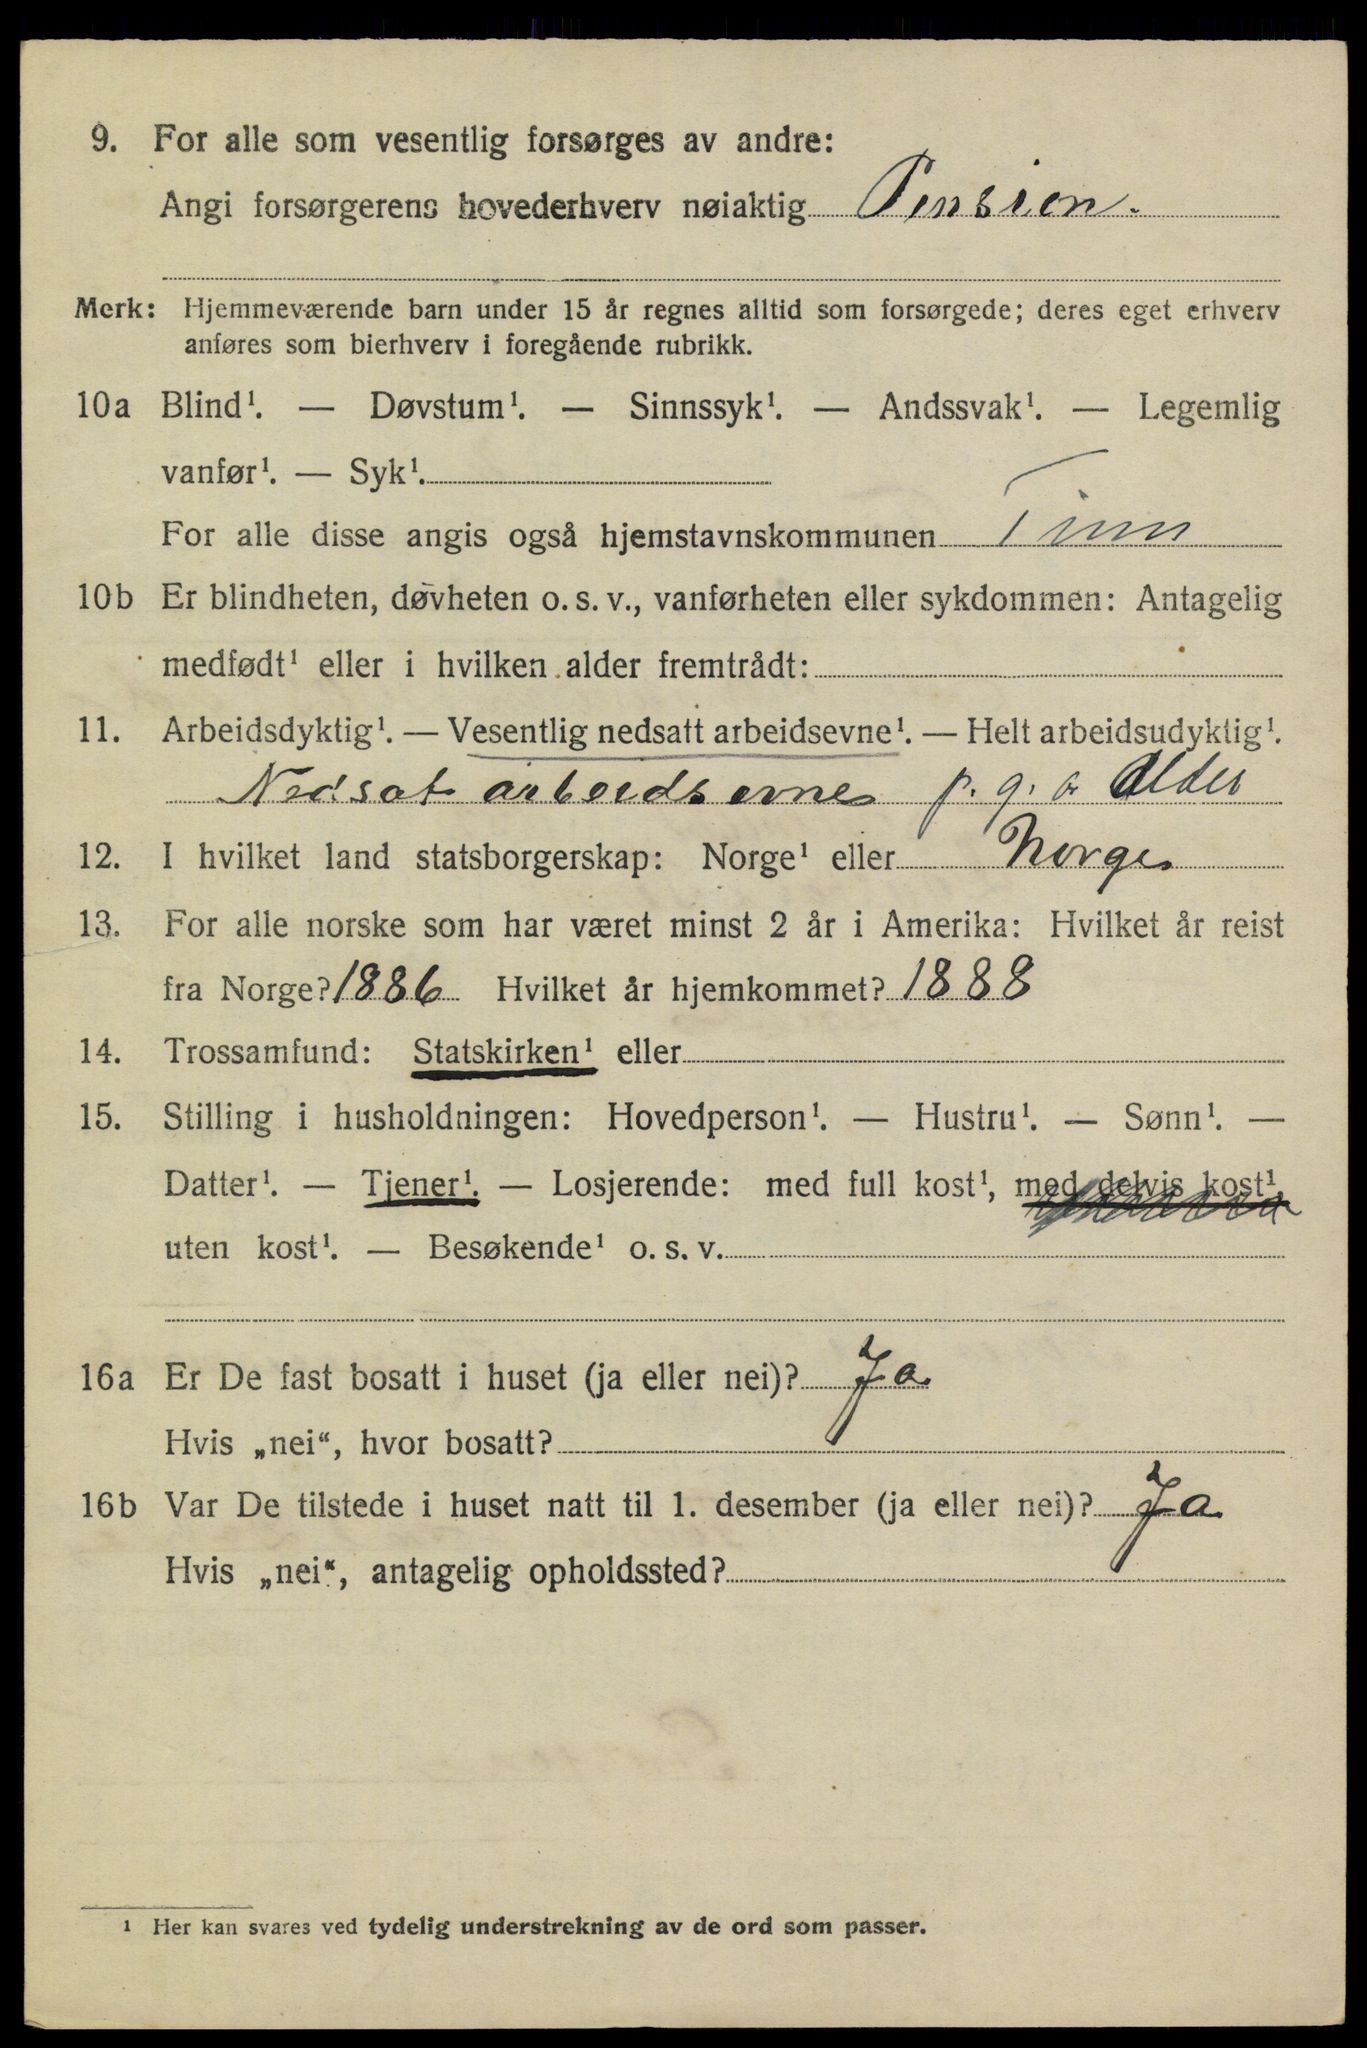 9. For alle som vesentlig forsørges av andre:
Angi forsørgerens hovederhverv nøiaktig Pension.
Merk: Hjemmeværende barn under 15 år regnes alltid som forsørgede; deres eget erhverv
anføres som bierhverv i foregående rubrikk.
10a Blind¹. — Døvstum¹. — Sinnssyk¹. — Andssvak¹. — Legemlig
vanfør¹. — Syk¹.
For alle disse angis også hjemstavnskommunen Tinn
10b Er blindheten, døvheten o. s. v., vanførheten eller sykdommen: Antagelig
medfødt¹ eller i hvilken alder fremtrådt:
11. Arbeidsdyktig¹. — Vesentlig nedsatt arbeidsevne¹. — Helt arbeidsudyktig¹.
Nedsat arbeidsevne p. g. a Alder
12. I hvilket land statsborgerskap: Norge¹ eller Norge
13. For alle norske som har været minst 2 år i Amerika: Hvilket år reist
fra Norge? 1886 Hvilket år hjemkommet? 1888
14. Trossamfund: Statskirken¹ eller
15. Stilling i husholdningen: Hovedperson¹. — Hustru¹. — Sønn¹. —
Datter¹. — Tjener¹. — Losjerende: med full kost¹, med delvis kost¹
uten kost¹. — Besøkende¹ o. s. v.
16a Er De fast bosatt i huset (ja eller nei)? Ja
Hvis „nei“, hvor bosatt?
16b Var De tilstede i huset natt til 1. desember (ja eller nei)? Ja
Hvis „nei“, antagelig opholdssted?
¹ Her kan svares ved tydelig understrekning av de ord som passer.